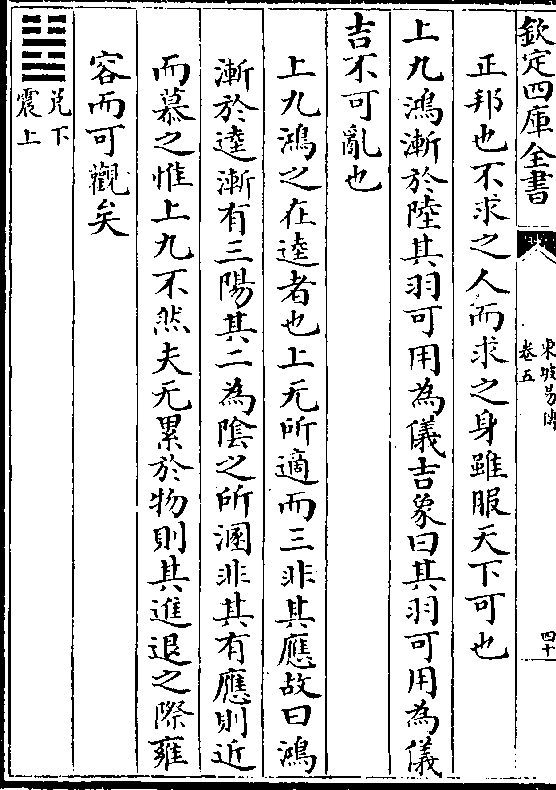 欽定四庫全書
東坡易傳
卷五
四十
正邦也不求之人而求之身雖服天下可也
上九鴻漸於陸其羽可用為儀吉象曰其羽可用為儀
吉不可亂也
上九鴻之在逵者也上无所適而三非其應故曰鴻
漸於逵漸有三陽其二為陰之所溷非其有應則近
而慕之惟上九不然夫无累於物則其進退之際雍
容而可觀矣
兌下
震上